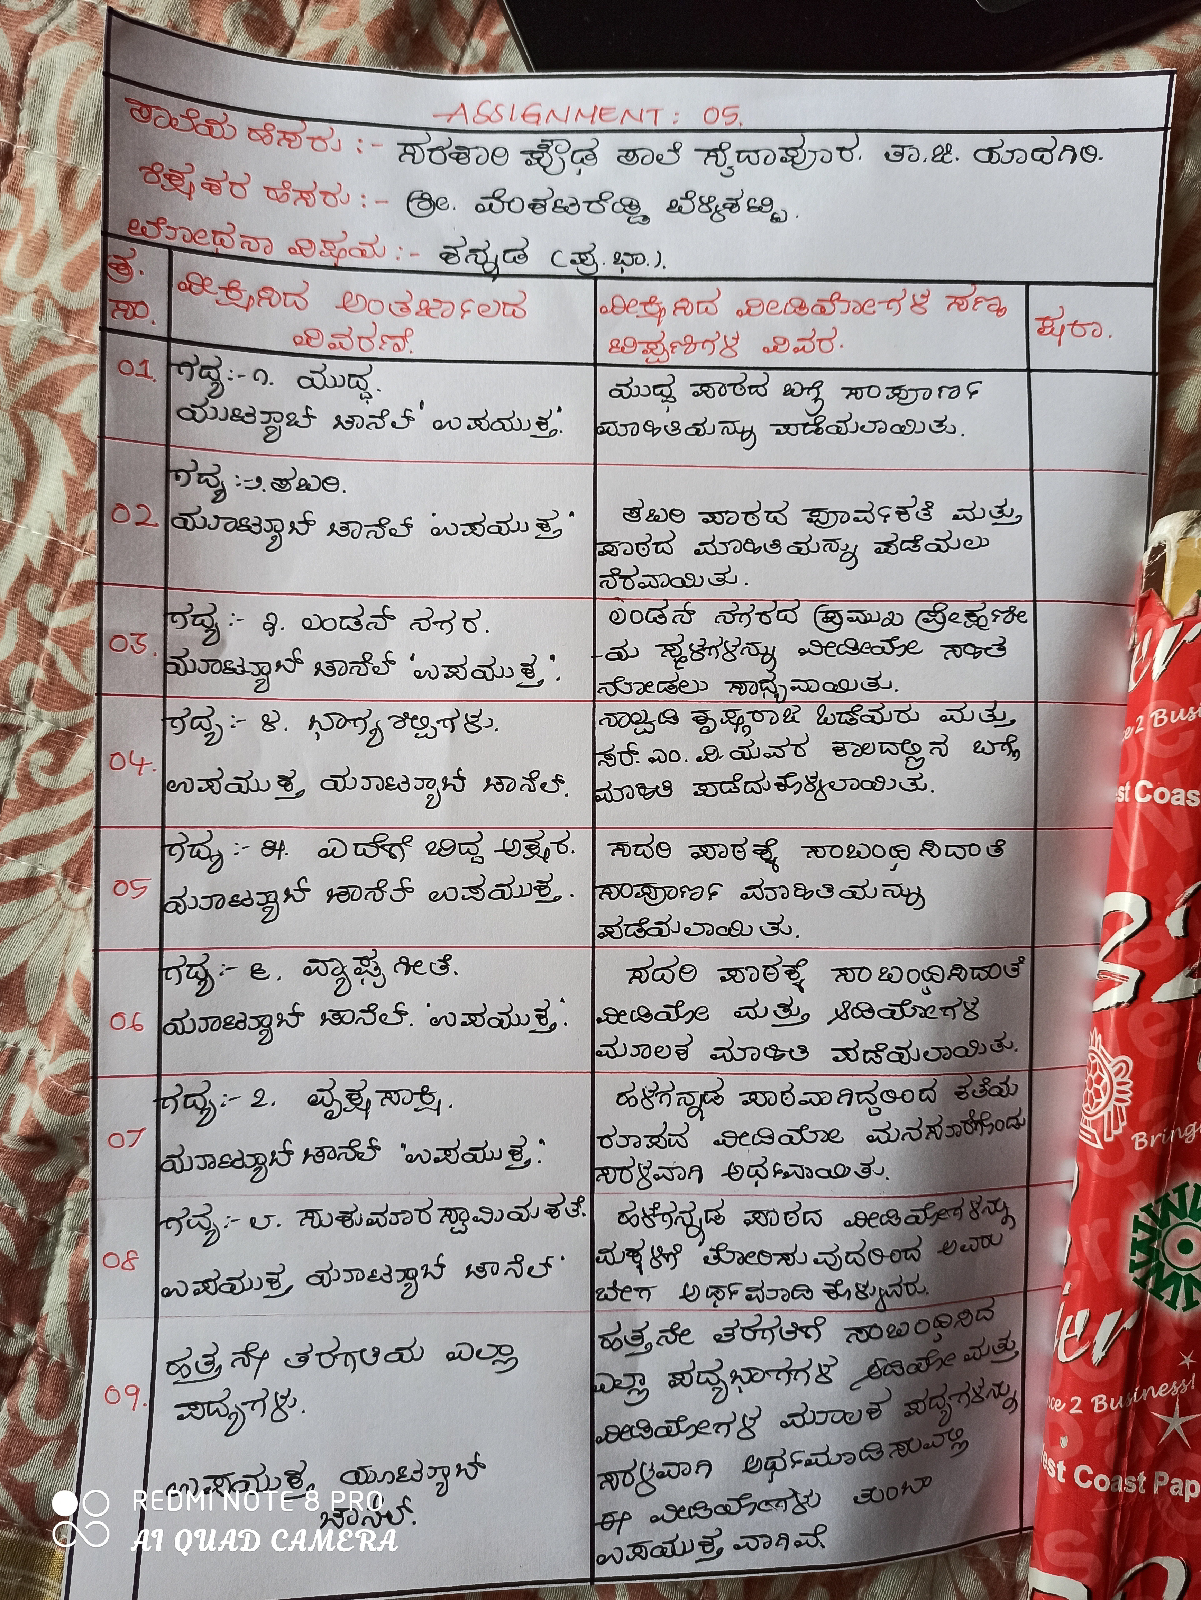 ASSIGNMENT: 05.
ಶಾಲೆಯ ಹೆಸರು :- ಸರಕಾರಿ ಪ್ರೌಢ ಶಾಲೆ ಸೈದಾಪೂರ. ತಾ.ಜಿ. ಯಾದಗಿರಿ.
ಶಿಕ್ಷಕರ ಹೆಸರು :- ಶ್ರೀ. ವೆಂಕಟರೆಡ್ಡಿ
ಬೋಧನಾ ವಿಷಯ :- ಕನ್ನಡ (ಪ್ರ.ಭಾ.).
ಕ್ರ.ಸಂ. ವೀಕ್ಷಿಸಿದ ಅಂತರ್ಜಾಲದ ವಿವರಣೆ.
ವೀಕ್ಷಿಸಿದ ವೀಡಿಯೋಗಳ ಸಣ್ಣ
ಟಿಪ್ಪಣಿಗಳ ವಿವರ.
ಷರಾ.
01. ಗದ್ಯ:- ೧. ಯುದ್ಧ.
ಯುಟ್ಯೂಬ್ ಚಾನೆಲ್ 'ಉಪಯುಕ್ತ'.
ಯುದ್ಧ ಪಾಠದ ಬಗ್ಗೆ ಸಂಪೂರ್ಣ
ಮಾಹಿತಿಯನ್ನು ಪಡೆಯಲಾಯಿತು.
02 ಗದ್ಯ :೨. ಶಬರಿ.
ಯೂಟ್ಯೂಬ್ ಚಾನೆಲ್ 'ಉಪಯುಕ್ತ'
ಶಬರಿ ಪಾಠದ ಪೂರ್ವಕತೆ ಮತ್ತು
ಪಾಠದ ಮಾಹಿತಿಯನ್ನು ಪಡೆಯಲು
ನೆರವಾಯಿತು.
03. ಗದ್ಯ :- ೩. ಲಂಡನ್ ನಗರ.
ಯೂಟ್ಯೂಬ್ ಚಾನೆಲ್ 'ಉಪಯುಕ್ತ'.
ಲಂಡನ್ ನಗರದ ಪ್ರಮುಖ ಪ್ರೇಕ್ಷಣೀ
-ಯ ಸ್ಥಳಗಳನ್ನು ವೀಡೀಯೋ ಸಹಿತ
ನೋಡಲು ಸಾಧ್ಯವಾಯಿತು.
04. ಗದ್ಯ :- ೪. ಭಾಗ್ಯ ಶಿಲ್ಪಿಗಳು.
ಉಪಯುಕ್ತ ಯೂಟ್ಯೂಬ್ ಚಾನೆಲ್.
ನಾಲ್ವಡಿ ಕೃಷ್ಣರಾಜ ಒಡೆಯರು ಮತ್ತು
ಸರ್. ಎಂ. ವಿ. ಯವರ ಕಾಲದಲ್ಲಿನ ಬಗ್ಗೆ
ಮಾಹಿತಿ ಪಡೆದುಕೊಳ್ಳಲಾಯಿತು.
05 ಗದ್ಯ :- ೫. ಎದೆಗೆ ಬಿದ್ದ ಅಕ್ಷರ.
ಯೂಟ್ಯೂಬ್ ಚಾನೆಲ್ ಉಪಯುಕ್ತ.
ಸದರಿ ಪಾಠಕ್ಕೆ ಸಂಬಂಧಿಸಿದಂತೆ
ಸಂಪೂರ್ಣ ಮಾಹಿತಿಯನ್ನು
ಪಡೆಯಲಾಯಿತು.
06 ಗದ್ಯ :- ೬. ವ್ಯಾಘ್ರ ಗೀತೆ.
ಯೂಟ್ಯೂಬ್ ಚಾನೆಲ್. 'ಉಪಯುಕ್ತ'.
ಸದರಿ ಪಾಠಕ್ಕೆ ಸಂಬಂಧಿಸಿದಂತೆ
ವೀಡಿಯೋ ಮತ್ತು ಆಡಿಯೋಗಳ
ಮೂಲಕ ಮಾಹಿತಿ ಪಡೆಯಲಾಯಿತು.
07 ಗದ್ಯ :- ೭. ವೃಕ್ಷ ಸಾಕ್ಷಿ.
ಯೂಟ್ಯೂಬ್ ಚಾನೆಲ್ 'ಉಪಯುಕ್ತ'.
ಹಳಗನ್ನಡ ಪಾಠವಾಗಿದ್ದರಿಂದ ಕತೆಯ
ರೂಪದ ವೀಡಿಯೋ ಮನಸೂರೆಗೊಂಡು
ಸರಳವಾಗಿ ಅರ್ಥವಾಯಿತು.
08 ಗದ್ಯ :- ೮. ಸುಕುಮಾರ ಸ್ವಾಮಿಯ ಕತೆ.
ಉಪಯುಕ್ತ ಯೂಟ್ಯೂಬ್ ಚಾನೆಲ್
ಹಳೆಗನ್ನಡ ಪಾಠದ ವೀಡಿಯೋಗಳನ್ನು
ಮಕ್ಕಳಿಗೆ ತೋರಿಸುವುದರಿಂದ ಅವರು
ಬೇಗ ಅರ್ಥಮಾಡಿಕೊಳ್ಳುವರು.
09. ಹತ್ತನೇ ತರಗತಿಯ ಎಲ್ಲಾ
ಪದ್ಯಗಳು.
ಉಪಯುಕ್ತ ಯೂಟ್ಯೂಬ್
ಚಾನೆಲ್.
ಹತ್ತನೇ ತರಗತಿಗೆ ಸಂಬಂಧಿಸಿದ
ಎಲ್ಲಾ ಪದ್ಯಭಾಗಗಳ ಆಡಿಯೋ ಮತ್ತು
ವೀಡಿಯೋಗಳ ಮೂಲಕ ಪದ್ಯಗಳನ್ನು
ಸರಳವಾಗಿ ಅರ್ಥಮಾಡಿಸುವಲ್ಲಿ
ಈ ವೀಡಿಯೋಗಳು ತುಂಬಾ
ಉಪಯುಕ್ತವಾಗಿವೆ.
st Coas
22
Bring
ier
ce 2 Business!
est Coast Pap
REDMI NOTE 8 PRO
AI QUAD CAMERA